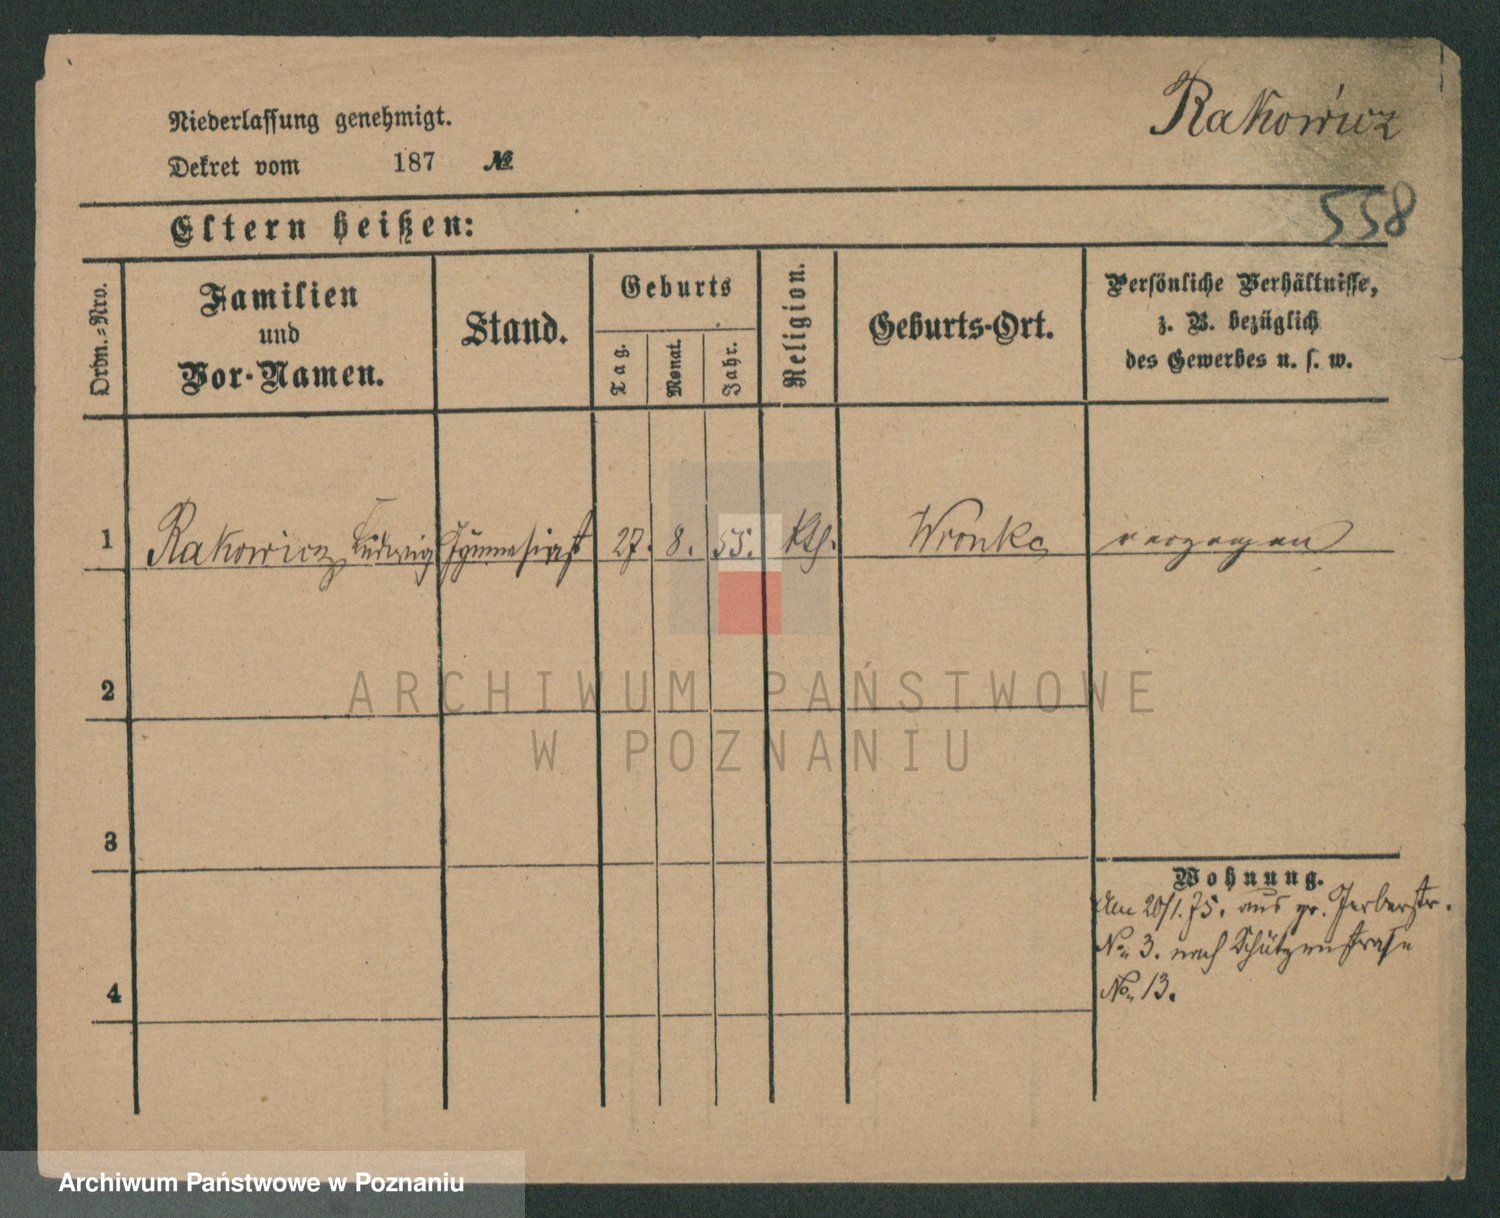 Rakowicz
Niederlassung genehmigt.
Dekret vom 187 №
558
Eltern heißen:
Ordn.=Nro.
Familien
und
Vor-Namen.
Stand.
Geburts
Tag.
Monat.
Jahr.
Religion.
Geburts-Ort.
Persönliche Verhältnisse,
z. B. bezüglich
des Gewerbes u. s. w.
1 Rakowicz Ludwig Gymnasiast 27. 8. 55. kth. Wronke verzogen
2
3
Wohnung.
Am 20/1.75. aus gr. Gerberstr.
No 3. nach Schützenstraße
No 13.
4
ARCHIWUM PAŃSTWOWE
W POZNANIU
Archiwum Państwowe w Poznaniu